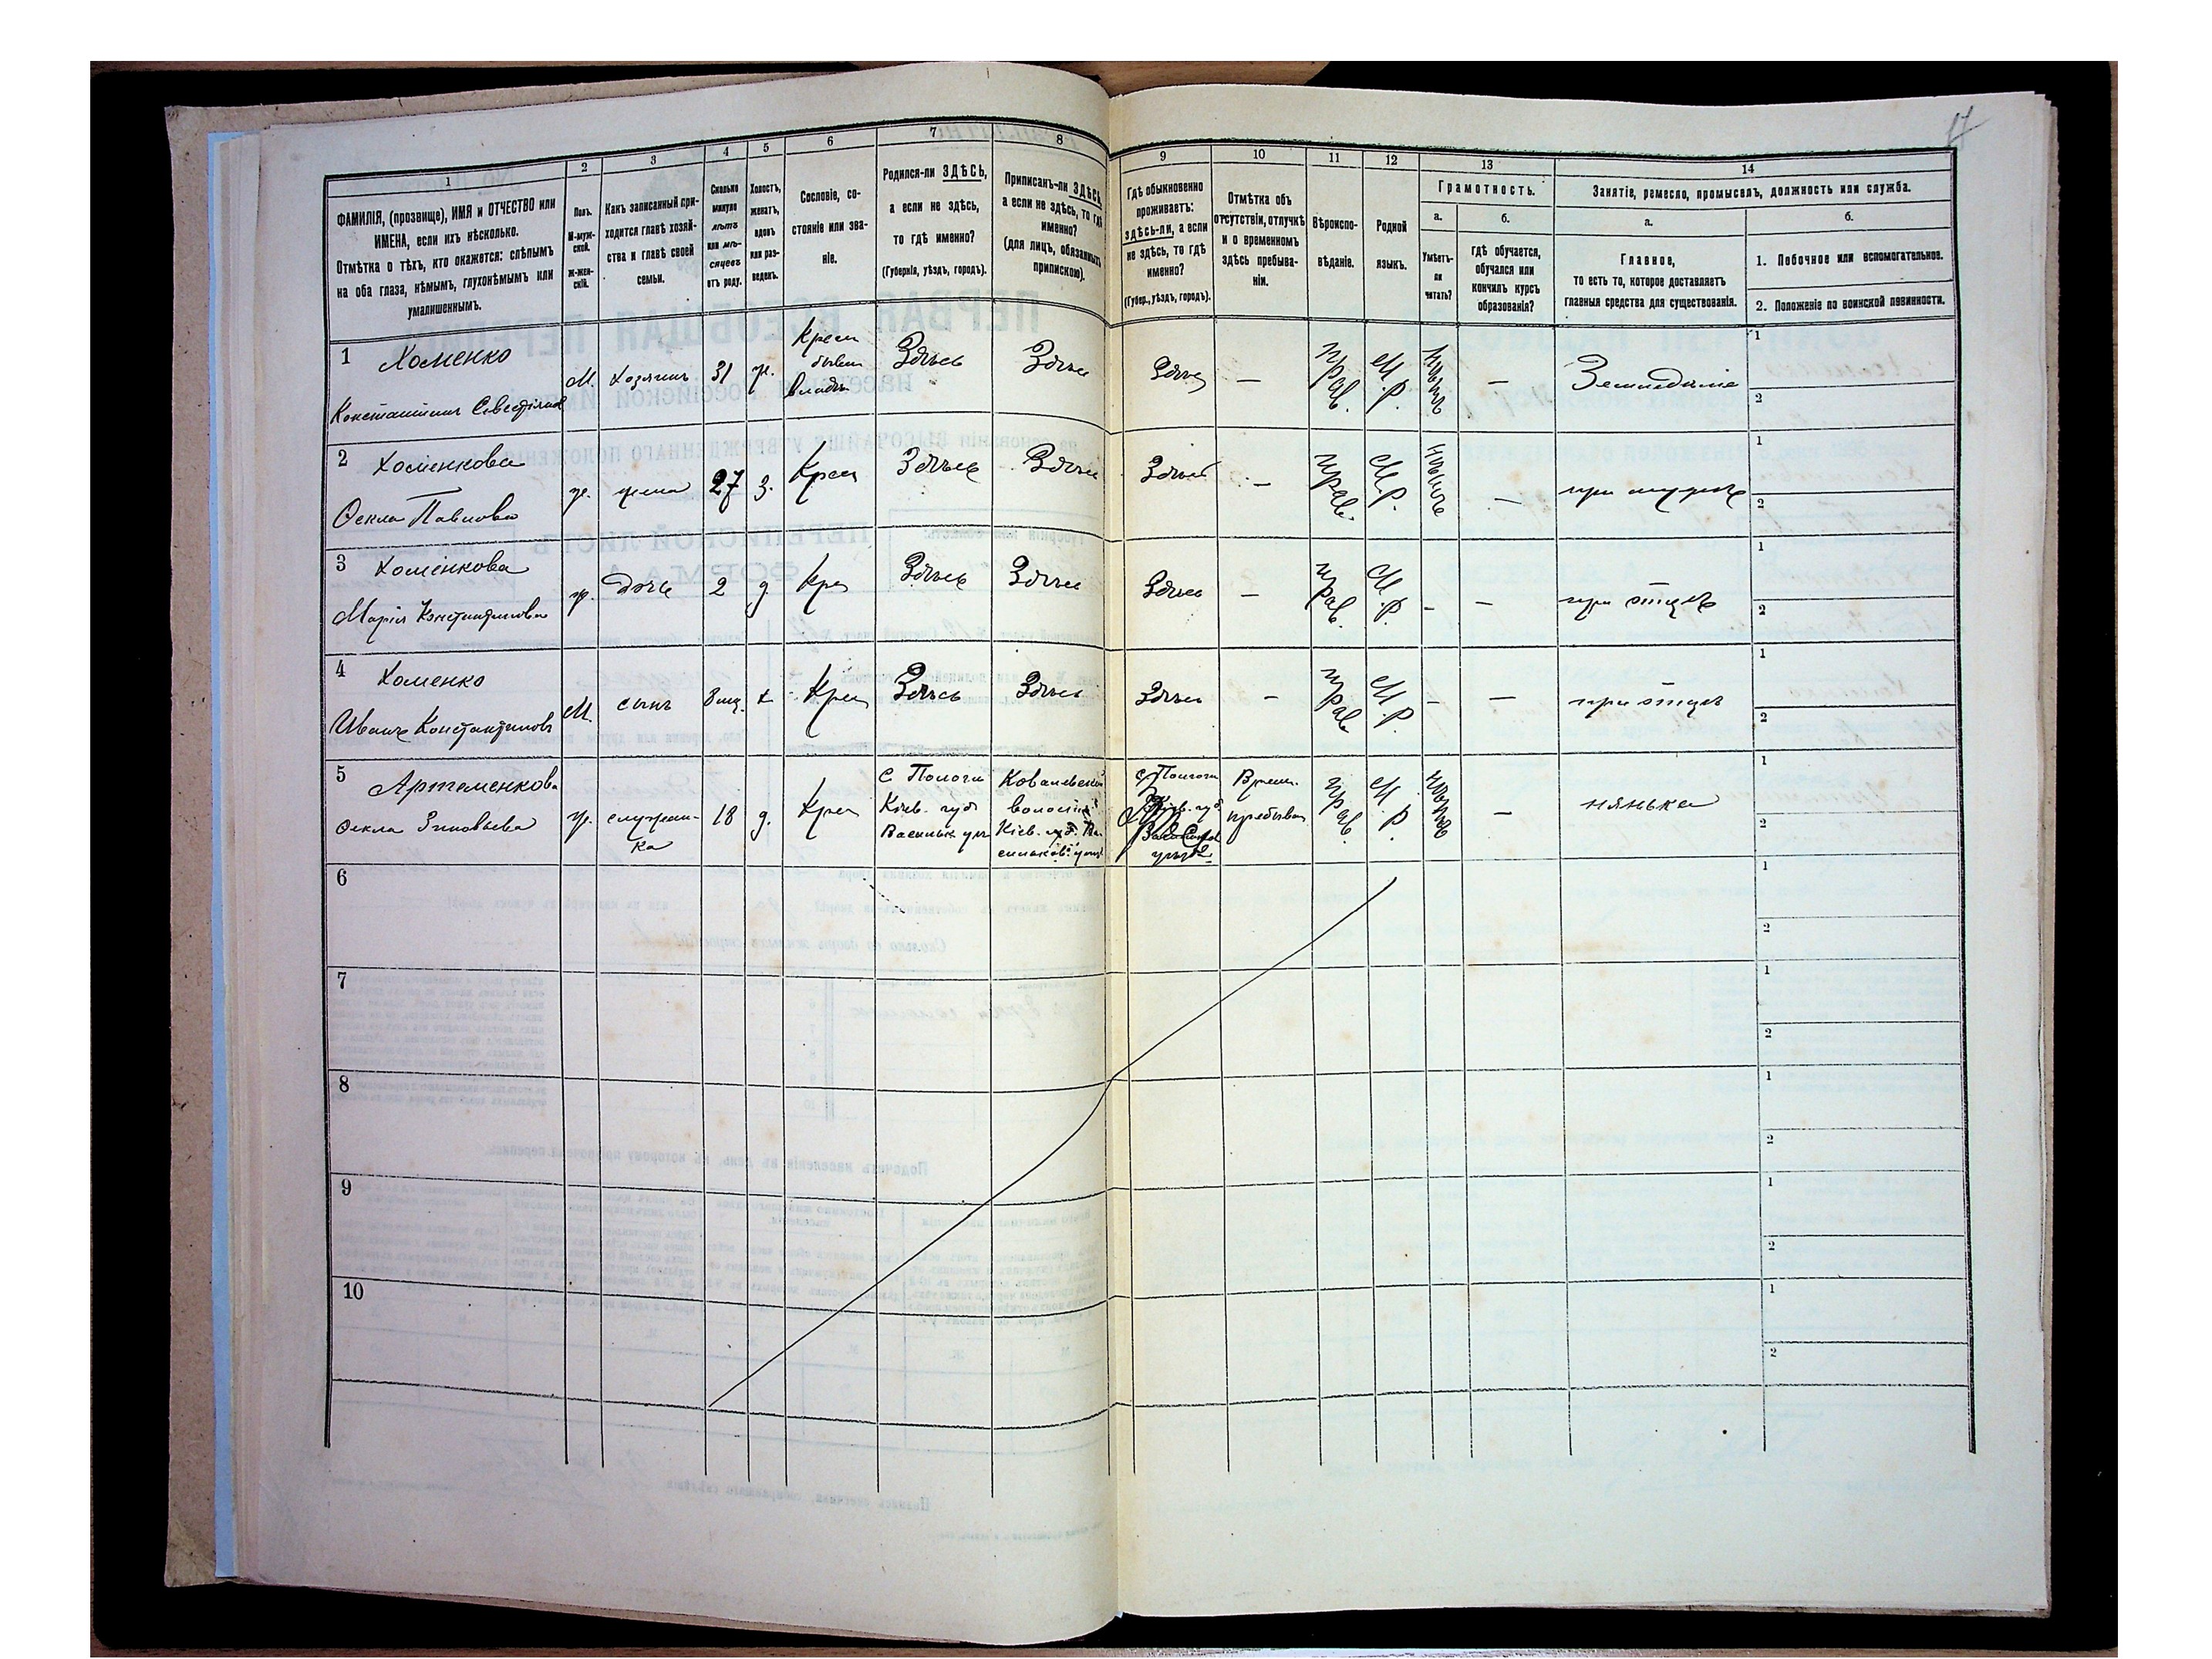 17
1 2 3 4 5 6 7 8 9 10 11 12 13 14
ФАМИЛІЯ, (прозвище), ИМЯ и ОТЧЕСТВО или
ИМЕНА, если ихъ нѣсколько.
Отмѣтка о тѣхъ, кто окажется: слѣпымъ
на оба глаза, нѣмымъ, глухонѣмымъ или
умалишеннымъ.
Полъ.
М-муж-
ской.
Ж-жен-
скій.
Какъ записанный при-
ходится главѣ хозяй-
ства и главѣ своей
семьи.
Сколько
минуло
лѣтъ
или мѣ-
сяцевъ
отъ роду.
Холостъ,
женатъ,
вдовъ
или раз-
веденъ.
Сословіе, со-
стояніе или зва-
ніе.
Родился-ли ЗДѢСЬ,
а если не здѣсь,
то гдѣ именно?
(Губернія, уѣздъ, городъ).
Приписанъ-ли ЗДѢСЬ,
а если не здѣсь, то гдѣ
именно?
(для лицъ, обязанныхъ
припискою).
Гдѣ обыкновенно
проживаетъ:
здѣсь-ли, а если
не здѣсь, то гдѣ
именно?
(Губер., уѣздъ, городъ).
Отмѣтка объ
отсутствіи, отлучкѣ
и о временномъ
здѣсь пребыва-
ніи.
Вѣроиспо-
вѣданіе.
Родной
языкъ.
Грамотность.
а. б.
Умѣетъ-
ли
читать?
гдѣ обучается,
обучался или
кончилъ курсъ
образованія?
Занятіе, ремесло, промыселъ, должность или служба.
а. б.
Главное,
то есть то, которое доставляетъ
главныя средства для существованія.
1. Побочное или вспомогательное.
2. Положеніе по воинской повинности.
1 Хоменко
Константинъ Севестіянов
М. Хозяинъ 31 ж. Крест бывш владѣл Здѣсь Здѣсь Здѣсь — прав. М.Р. — Земледѣліе 1
2
2 Хоменкова
Ѳекла Павлова
ж. жена 27 з. Крест Здѣсь Здѣсь Здѣсь — прав. М.Р. — при мужѣ 1
2
3 Хоменкова
Марія Константинова
ж. дочь 2 д. Крес Здѣсь Здѣсь Здѣсь — прав. М.Р. — — при отцѣ 1
2
4 Хоменко
Иванъ Константиновъ
М. сынъ 8 мц. х Крес Здѣсь Здѣсь Здѣсь — прав. М.Р. — — при отцѣ 1
2
5 Артеменкова
Ѳекла Зиновьева
ж. служан-
ка
18 д. Крес
С Пологи
Кіев. губ
Васильк уѣз
Ковалевской
волости
Кіев. губ. Ва-
сильков. уѣзд
С Пологи
Кіев. губ
уѣзда
Врем.
пребыван
прав. М.Р. — нянька 1
2
6 1
2
7 1
2
8 1
2
9 1
2
10 1
2